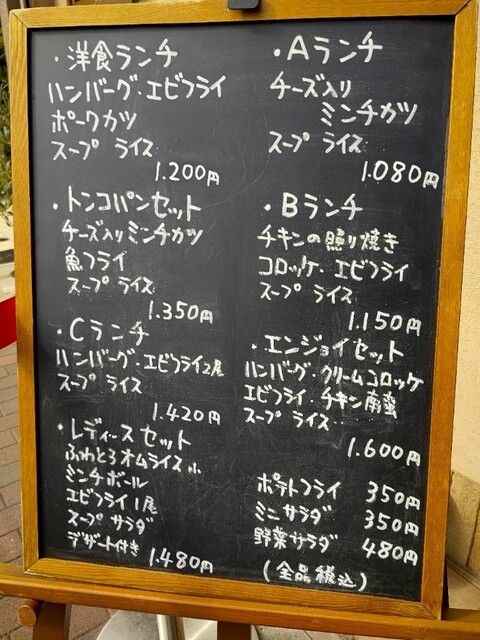 ・洋食ランチ
ハンバーグ・エビフライ
ポークカツ
スープ ライス
1.200円
・トンコパンセット
チーズ入りミンチカツ
魚フライ
スープ ライス
1.350円
・Cランチ
ハンバーグ・エビフライ2尾
スープ ライス
1.420円
・レディースセット
ふわとろオムライス小
ミンチボール
エビフライ1尾
スープ サラダ
デザート付き 1.480円
・Aランチ
チーズ入り
ミンチカツ
スープ ライス
1.080円
・Bランチ
チキンの照り焼き
コロッケ・エビフライ
スープ ライス
1.150円
・エンジョイセット
ハンバーグ・クリームコロッケ
エビフライ・チキン南蛮
スープ ライス
1.600円
ポテトフライ 350円
ミニサラダ 350円
野菜サラダ 480円
(全品税込)